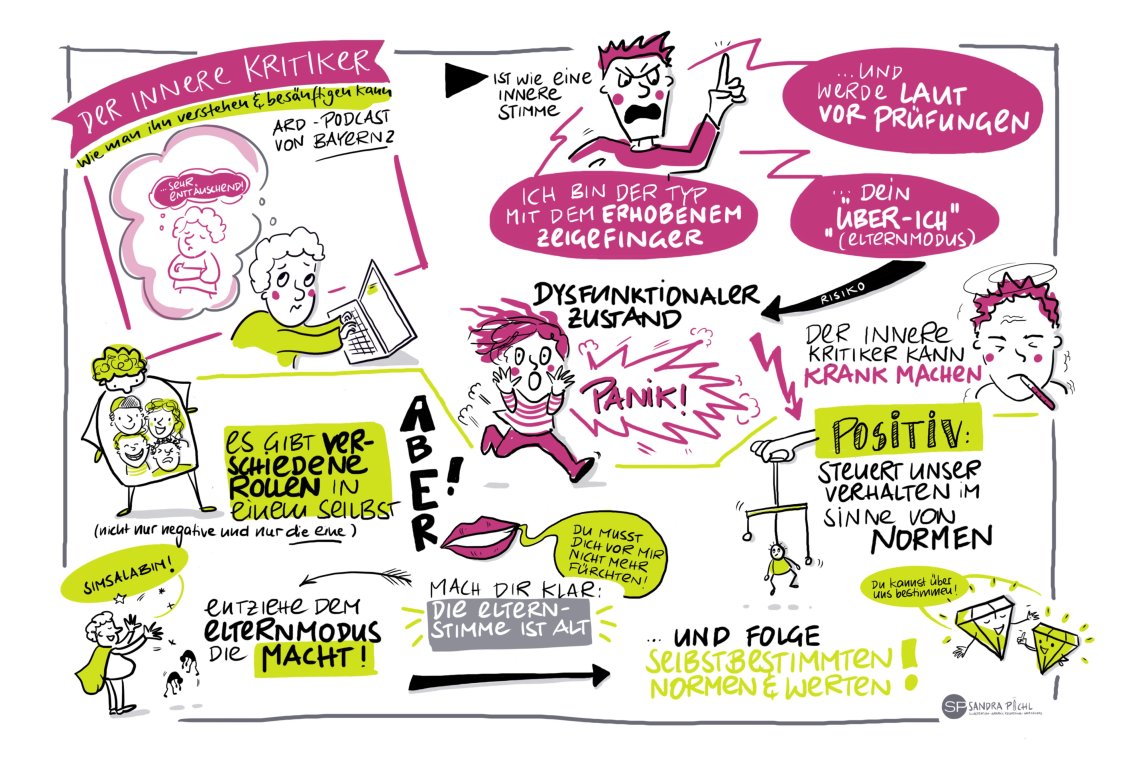 DER INNERE KRITIKER
Wie man ihn verstehen & besänftigen kann
ARD-PODCAST
VON BAYERN 2
...SEHR
ENTTÄUSCHEND!
IST WIE EINE
INNERE
STIMME
...UND
WERDE LAUT
VOR PRÜFUNGEN
ICH BIN DER TYP
MIT DEM ERHOBENEM
ZEIGEFINGER
... DEIN
"ÜBER-ICH"
"(ELTERNMODUS)
RISIKO
DYSFUNKTIONALER
ZUSTAND
PANIK!
DER INNERE
KRITIKER KANN
KRANK MACHEN
ES GIBT VER-
SCHIEDENE
ROLLEN IN
EINEM SEILBST
(nicht nur negative und nur die eine)
ABER!
POSITIV:
STEUERT UNSER
VERHALTEN IM
SINNE VON
NORMEN
DU MUSST
DICH VOR MIR
NICHT MEHR
FÜRCHTEN!
SIMSALABIM!
ENTZIEHE DEM
ELTERNMODUS
DIE MACHT!
MACH DIR KLAR:
DIE ELTERN-
STIMME IST ALT
... UND FOLGE
SELBSTBESTIMMTEN
NORMEN & WERTEN!
Du kannst über
uns bestimmen!
SP SANDRA PÜCHL